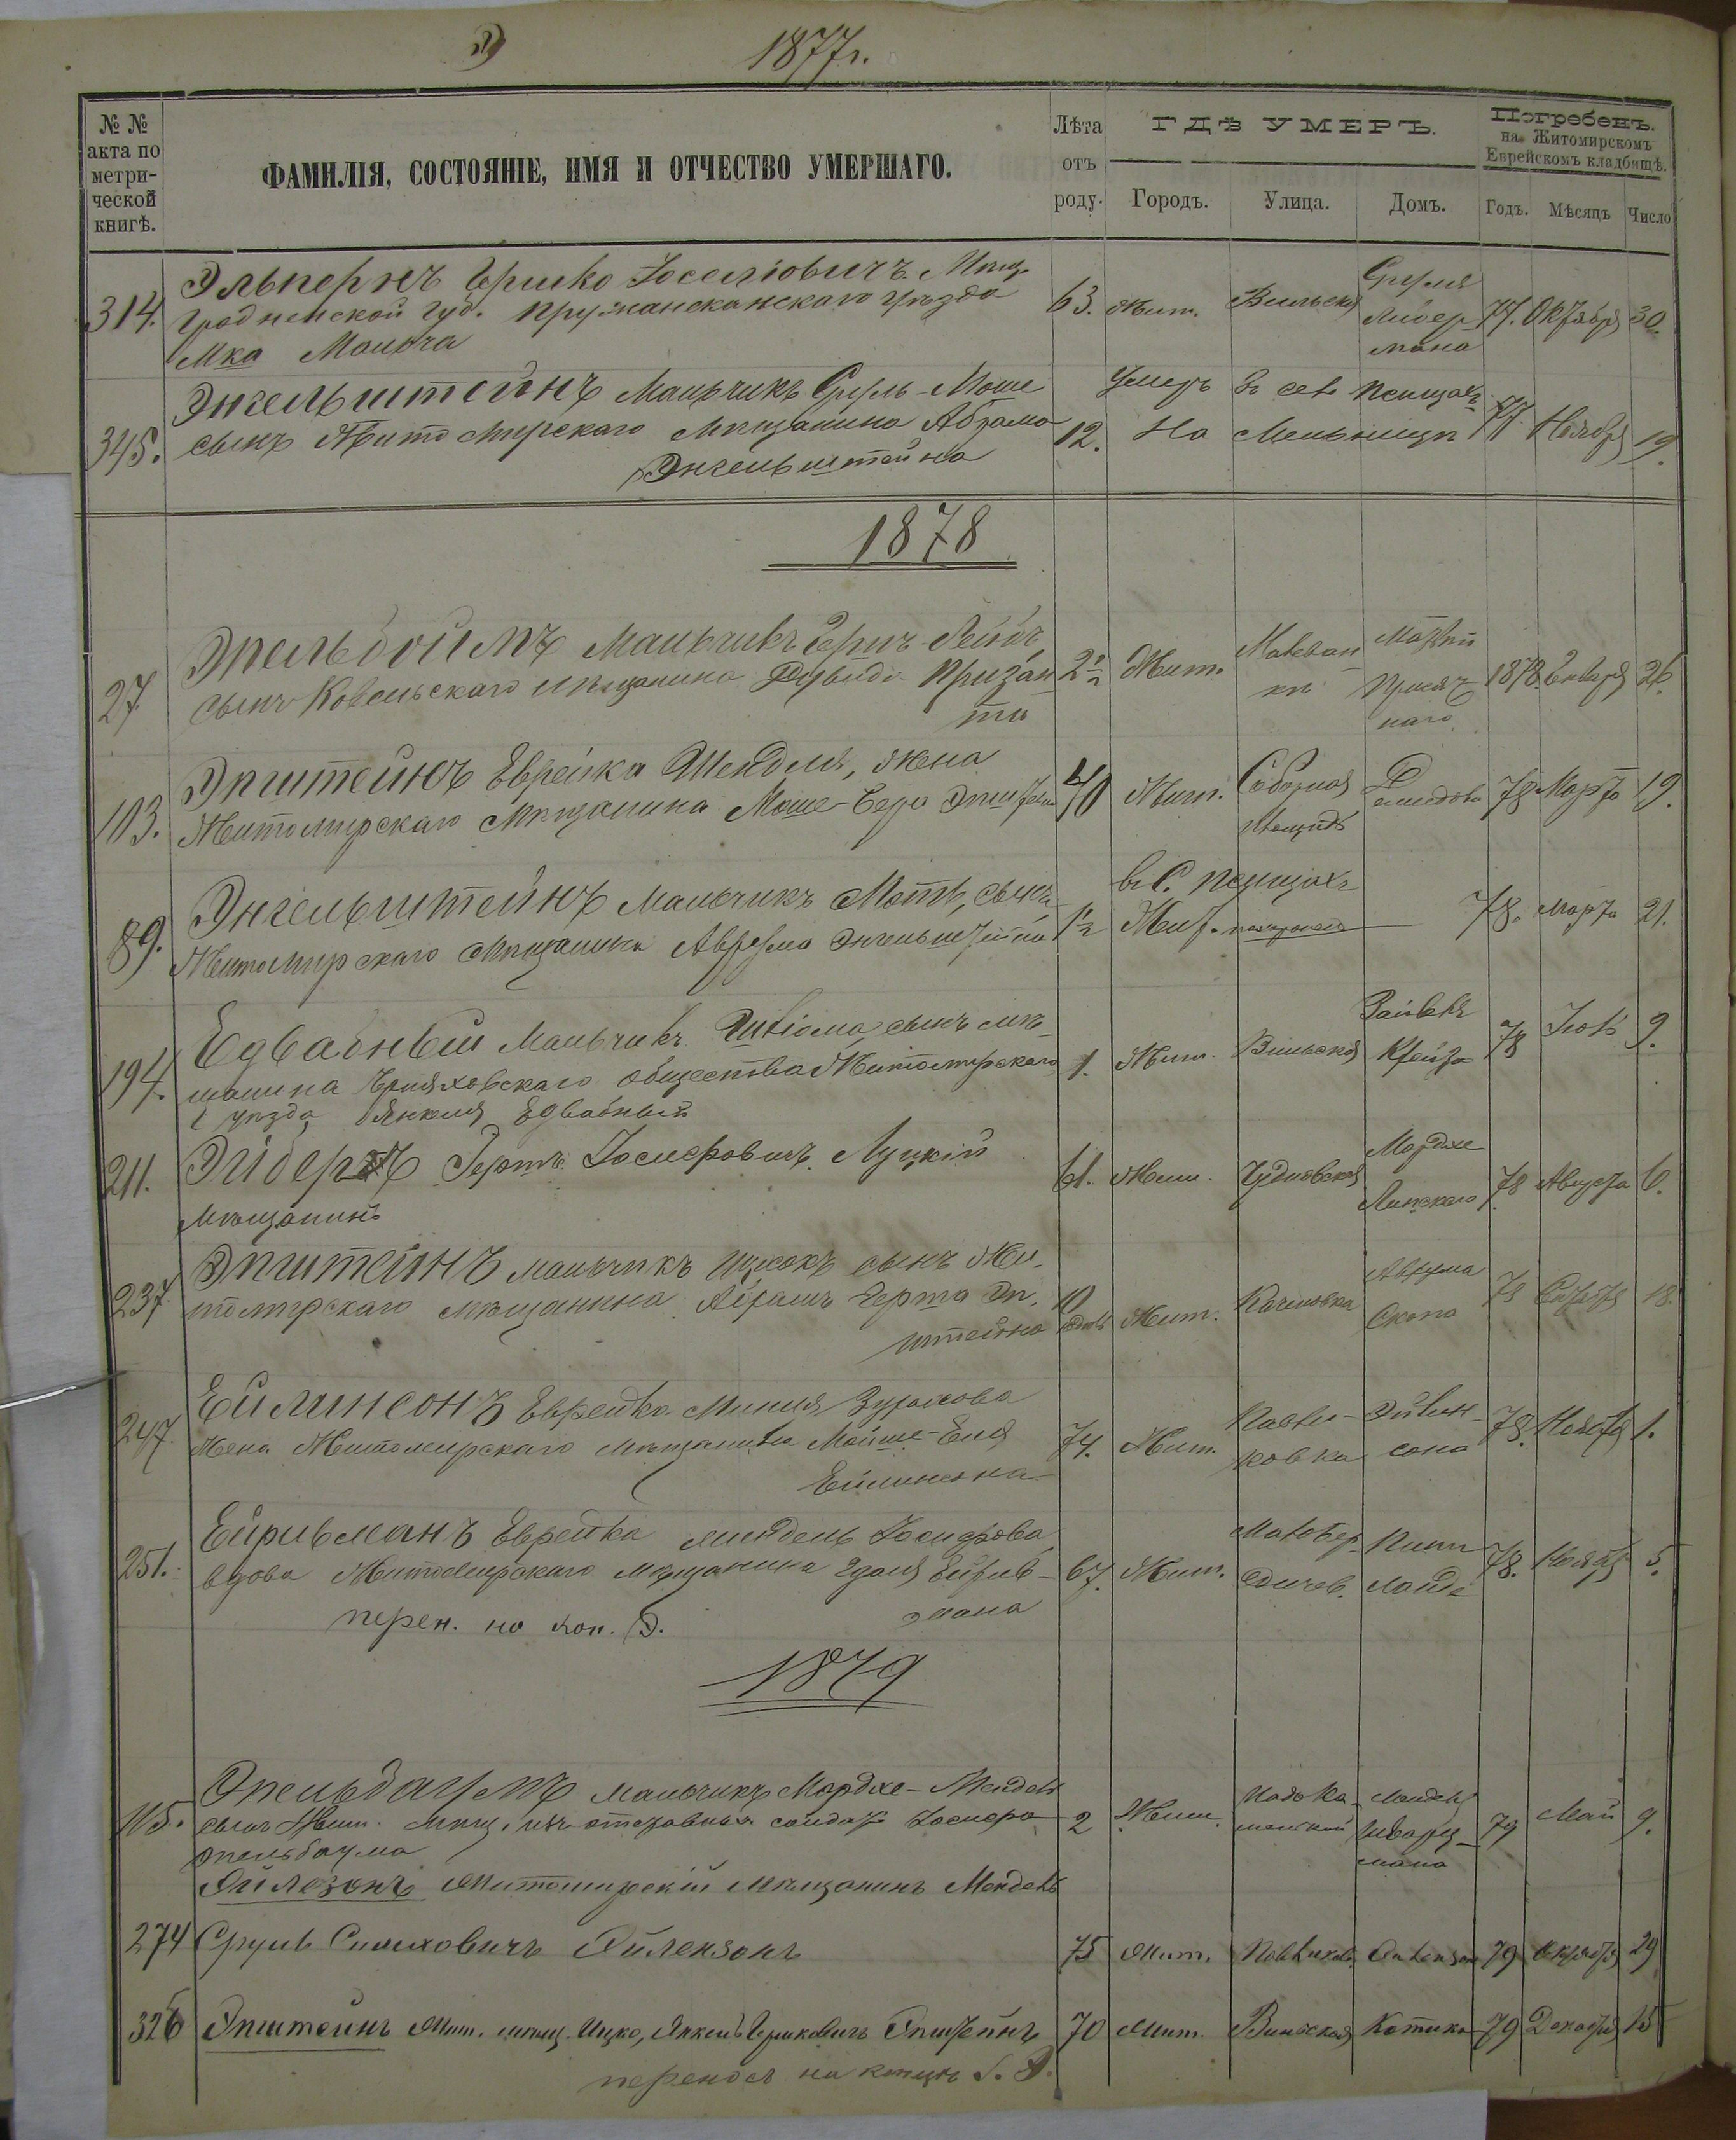 1877г.
№ №
акта по
метри-
ческой
книгѣ.
ФАМИЛІЯ, СОСТОЯНІЕ, ИМЯ И ОТЧЕСТВО УМЕРШАГО.
Лѣта
отъ
роду.
ГДѢ УМЕРЪ.
Городъ.
Улица.
Домъ.
Погребенъ.
на Житомирскомъ
Еврейскомъ кладбищѣ.
Годъ.
Мѣсяцъ
Число
314.
Эльпернъ Гершко Іоселіовичъ Мѣщ.
Гродненской губ. Пружанскаго уѣзда
М-ка Мальча
63. Жит. Вильская
Сруля
Либер
мана
77. Октября 30.
345.
Энгельштейнъ Мальчикъ Сруль-Моше
сынъ Житомирскаго мѣщанина Абрама
Энгельштейна
12.
Умеръ въ селѣ Псищахъ
На Мельницѣ
77 Ноября 19.
1878
27.
Эпельбоймъ Мальчикъ Герш-Лейбъ
сынъ Ковельскаго мѣщанина
2 Жит.
Малеван
ки
1878. Января 26.
103.
Эпштейнъ Еврейка Шендля, жена
Житомирскаго мѣщанина Моше-Бера Эпштейна
40 Жит.
Соборная
площадь
Демидова
78 Марта 19.
89.
Энгельштейнъ мальчикъ Мотъ, сынъ
Житомирскаго мѣщанина Аврума Энгельштейна
в С. Псищахъ
Жит.
78. Марта 21.
194.
Едвабный Мальчикъ сынъ мѣ-
щанина Черняховскаго общества Житомирскаго
уѣзда Янкеля Едвабный
1. Жит. Вильская
Крейза
78 9.
211.
Эйдеръ Герть Іосифовичъ Луцкій
мѣщанинъ
61. Жит. Чудновская
Мордхе
Липскаго
78 Августа 6.
237.
Эпштейнъ мальчикъ Ицхокъ сынъ Жи-
томирскаго мѣщанина Абрамъ Герша Эп-
штейна
10
Жит. Кашновка
Аврума
Скопа
78 18.
247.
Ейлинсонъ Еврейка Миния
Жена Житомирскаго мѣщанина Мойше-Еля
Ейлинсона
74. Жит.
Павли-
ковка
Эйлин-
сона
78. Ноября 1.
251.
Ейрисманъ Еврейка Миндель Іосифова
вдова Житомирскаго мѣщанина
мана
67. Жит.
Малобер
дичев.
78. Ноября 5.
перен. на кон. Э.
1879
115.
Эпельбаумъ мальчикъ Мордхе-Мендель
сынъ Жит. мѣщ. изъ отставныхъ солдатъ Іосифа
Эпельбаума
2 Жит.
Мендель
Шварц-
мана
79 Май 9.
Эйлезонъ Житомирскій мѣщанинъ Мендель
274 Сруль Симховичъ Эйлензонъ
75 Жит. 79 Октября 29
326 Эпштейнъ Жит. мѣщ. Ицко, Янкель Гершковичъ Эпштейнъ
70 Жит. Вильская Котика 79 Декабря 15
переносъ на концѣ б. Э.